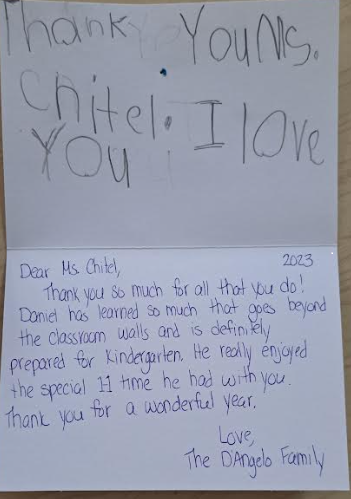 Thank You Ms.
Chitel. I love
You
2023
Dear Ms. Chitel,
Thank you so much for all that you do!
Daniel has learned so much that goes beyond
the classroom walls and is definitely
prepared for Kindergarten. He really enjoyed
the special 1:1 time he had with you.
Thank you for a wonderful year.
Love,
The D'Angelo Family